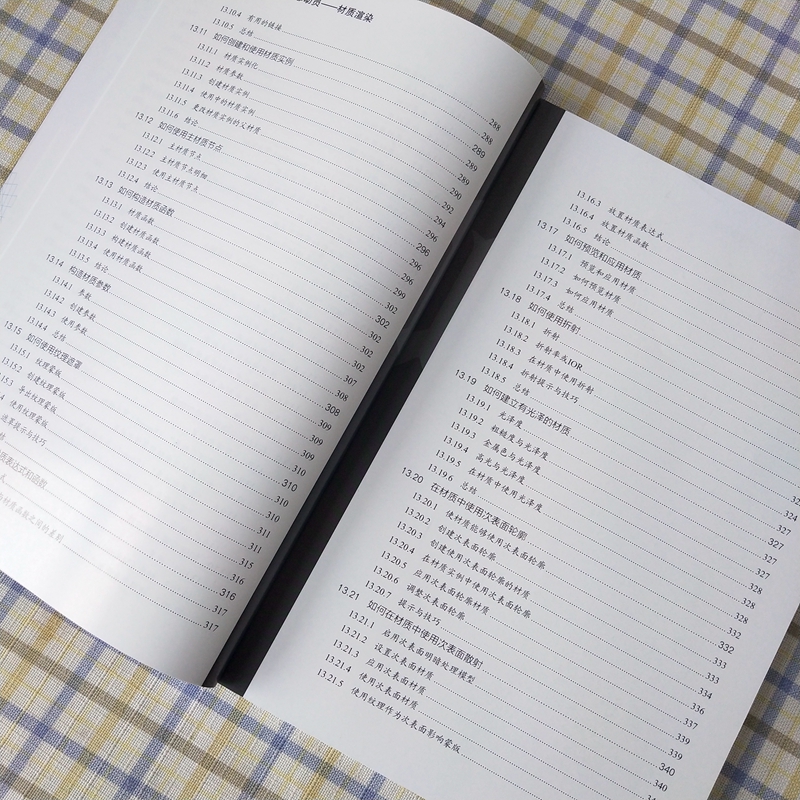 材质渲染
13.10.4 有用的链接
13.10.5 总结 288
13.11 如何创建和使用材质实例 288
13.11.1 材质实例化 289
13.11.2 材质参数 289
13.11.3 创建材质实例 289
13.11.4 使用中的材质实例 290
13.11.5 更改材质实例的父材质 292
13.11.6 结论 294
13.12 如何使用主材质节点 296
13.12.1 主材质节点 296
13.12.2 主材质节点明细 296
13.12.3 使用主材质节点 299
13.12.4 结论 302
13.13 如何构造材质函数 302
13.13.1 材质函数 302
13.13.2 创建材质函数 302
13.13.3 构建材质函数 307
13.13.4 使用材质函数 308
13.13.5 结论 308
13.14 构造材质参数 309
13.14.1 参数 309
13.14.2 创建参数 309
13.14.3 使用参数 310
13.14.4 总结 310
13.15 如何使用纹理遮罩 310
13.15.1 纹理蒙版 310
13.15.2 创建纹理蒙版 311
15.3 导出纹理蒙版 311
4 使用纹理蒙版 315
遮罩提示与技巧 316
结 316
质表达式和函数
式 317
与材质函数之间的差别 317
13.16.3 放置材质表达式
13.16.4 放置材质函数
13.16.5 结论
13.17 如何预览和应用材质
13.17.1 预览和应用材质
13.17.2 如何预览材质
13.17.3 如何应用材质
13.17.4 总结
13.18 如何使用折射
13.18.1 折射
13.18.2 折射率或IOR
13.18.3 在材质中使用折射
13.18.4 折射提示与技巧
13.18.5 总结
13.19 如何建立有光泽的材质
13.19.1 光泽度 324
13.19.2 粗糙度与光泽度 327
13.19.3 金属色与光泽度 327
13.19.4 高光与光泽度 327
13.19.5 在材质中使用光泽度 327
13.19.6 总结 328
13.20 在材质中使用次表面轮廓
13.20.1 使材质能够使用次表面轮廓 328
13.20.2 创建次表面轮廓 332
13.20.3 创建使用次表面轮廓的材质 332
13.20.4 在材质实例中使用次表面轮廓 333
13.20.5 应用次表面轮廓材质 333
13.20.6 调整次表面轮廓 334
13.20.7 提示与技巧 336
13.21 如何在材质中使用次表面散射 337
13.21.1 启用次表面明暗处理模型 339
13.21.2 设置次表面材质 339
13.21.3 应用次表面材质 340
13.21.4 使用次表面材质 340
13.21.5 使用纹理作为次表面影响蒙版